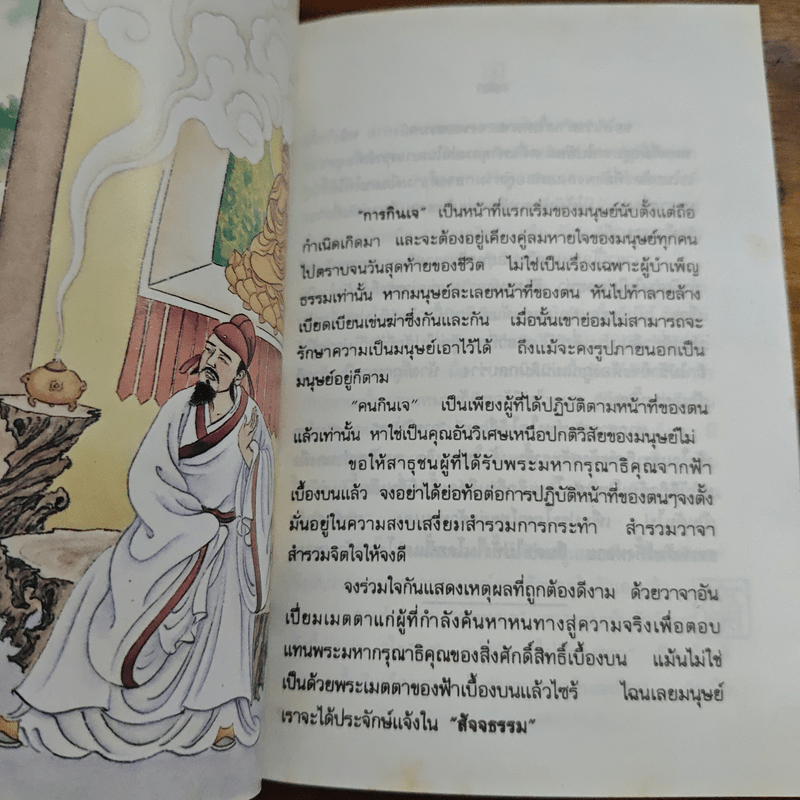 "การกินเจ" เป็นหน้าที่แรกเริ่มของมนุษย์นับตั้งแต่ถือ
กำเนิดเกิดมา และจะต้องอยู่เคียงคู่ลมหายใจของมนุษย์ทุกคน
ไปตราบจนวันสุดท้ายของชีวิต ไม่ใช่เป็นเรื่องเฉพาะผู้บำเพ็ญ
ธรรมเท่านั้น หากมนุษย์ละเลยหน้าที่ของตน หันไปทำลายล้าง
เบียดเบียนเข่นฆ่าซึ่งกันและกัน เมื่อนั้นเขาย่อมไม่สามารถจะ
รักษาความเป็นมนุษย์เอาไว้ได้ ถึงแม้จะคงรูปภายนอกเป็น
มนุษย์อยู่ก็ตาม
"คนกินเจ" เป็นเพียงผู้ที่ได้ปฏิบัติตามหน้าที่ของตน
แล้วเท่านั้น หาใช่เป็นคุณอันวิเศษเหนือปกติวิสัยของมนุษย์ไม่
ขอให้สาธุชนผู้ที่ได้รับพระมหากรุณาธิคุณจากฟ้า
เบื้องบนแล้ว จงอย่าได้ย่อท้อต่อการปฏิบัติหน้าที่ของตนๆจงตั้ง
มั่นอยู่ในความสงบเสงี่ยมสำรวมการกระทำ สำรวมวาจา
สำรวมจิตใจให้จงดี
จงร่วมใจกันแสดงเหตุผลที่ถูกต้องดีงาม ด้วยวาจาอัน
เปี่ยมเมตตาแก่ผู้ที่กำลังค้นหาหนทางสู่ความจริงเพื่อตอบ
แทนพระมหากรุณาธิคุณของสิ่งศักดิ์สิทธิ์เบื้องบน แม้นไม่ใช่
เป็นด้วยพระเมตตาของฟ้าเบื้องบนแล้วไซร้ ไฉนเลยมนุษย์
เราจะได้ประจักษ์แจ้งใน "สัจจธรรม"